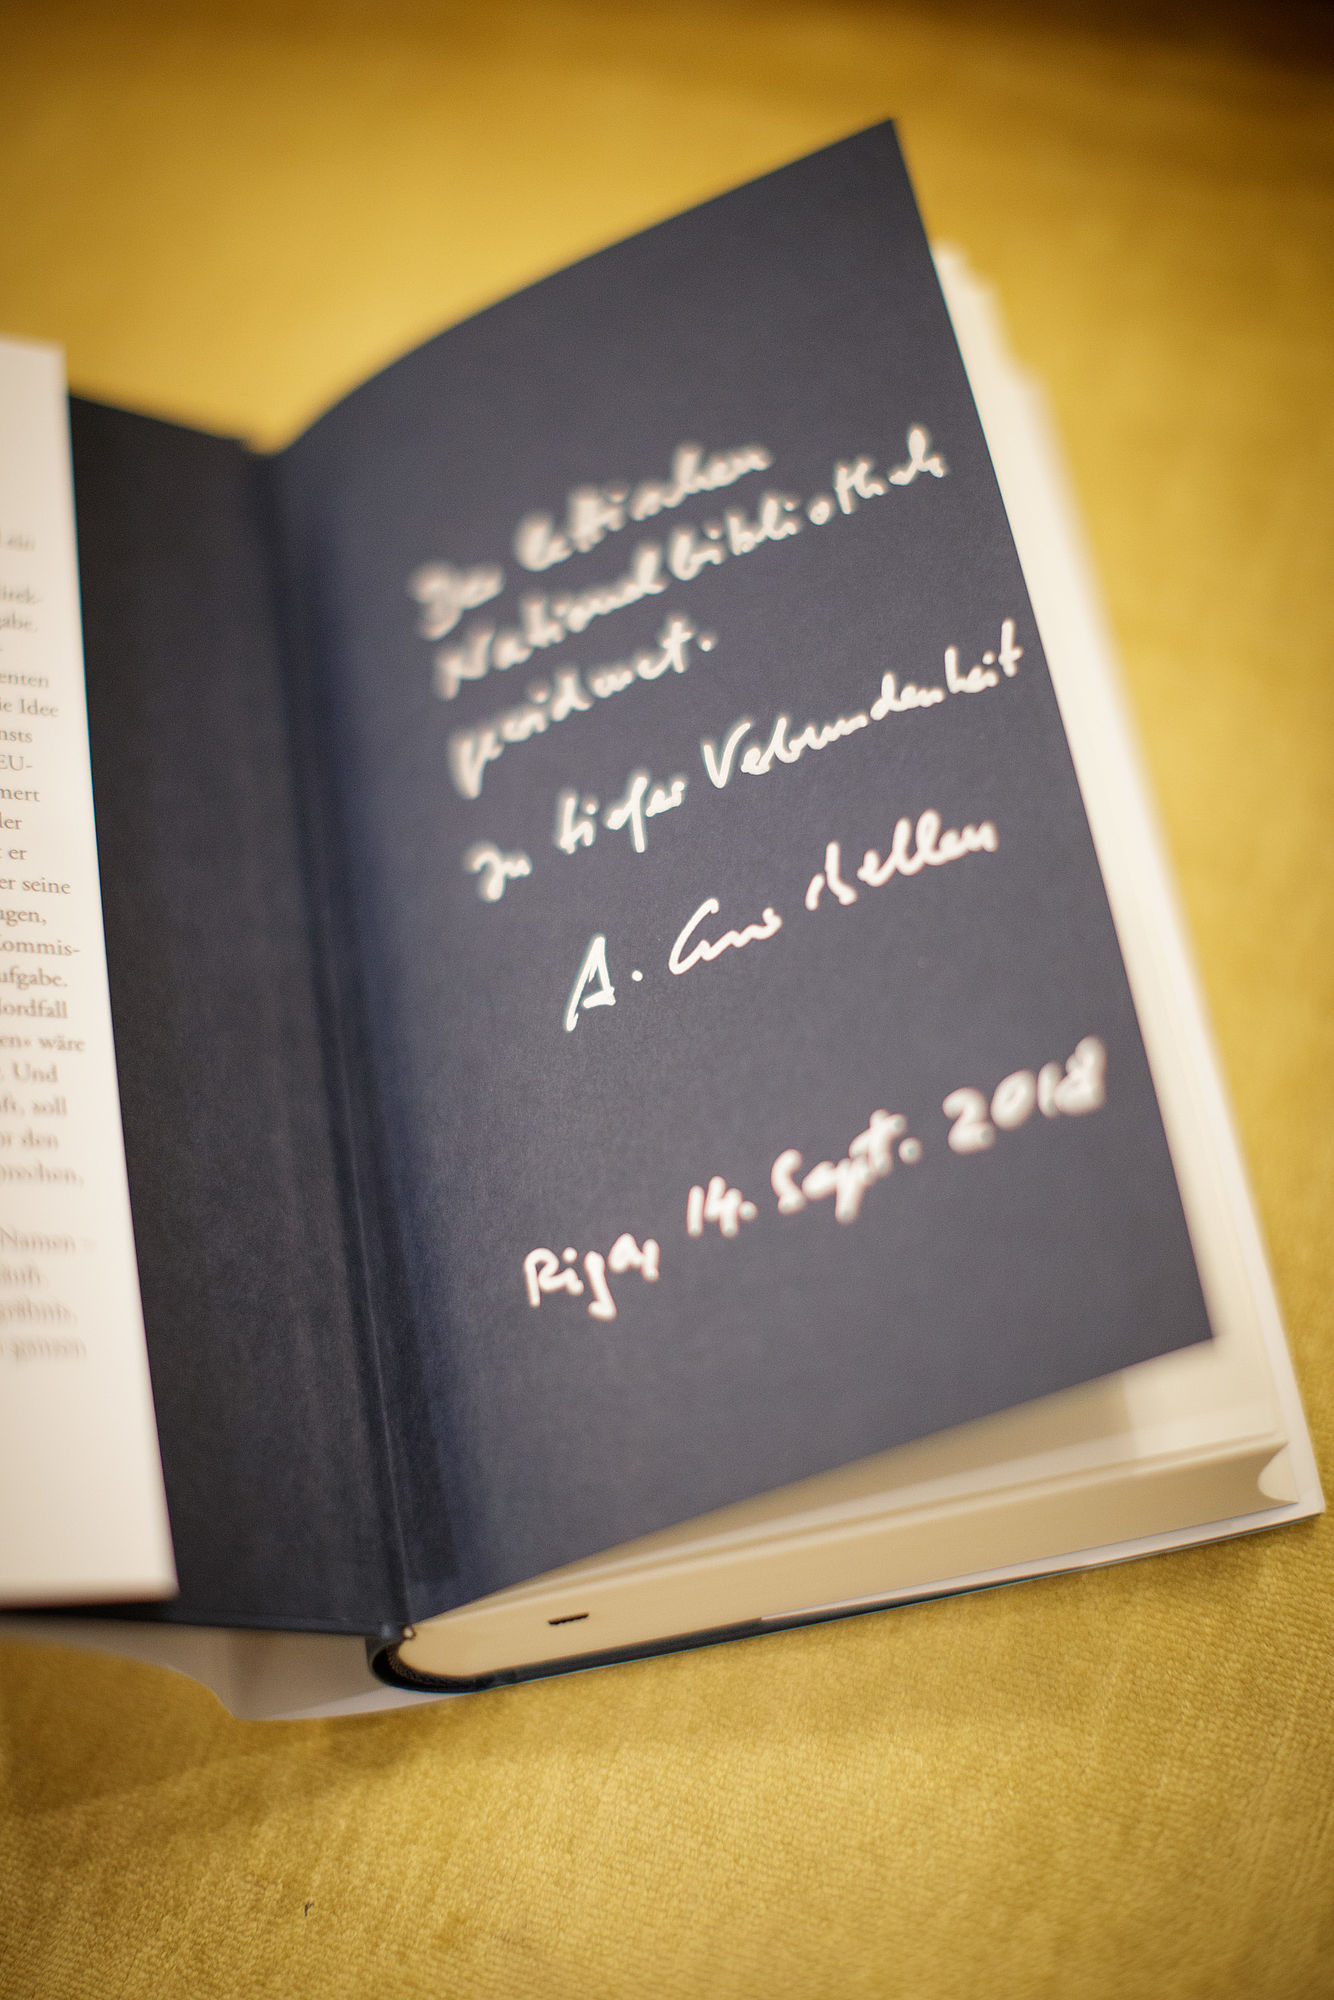 ein
direk-
gabe.
enten
ie Idee
nsts
EU-
mert
der
t er
er seine
ugen,
Kommis-
ufgabe.
Mordfall
en« wäre
. Und
ft, soll
or den
prechen,
Namen –
läuft
gräbnis,
ganzen
Der lettischen
Nationalbibliothek
gewidmet.
In tiefer Verbundenheit
A. Van der Bellen
Riga, 14. Sept. 2018